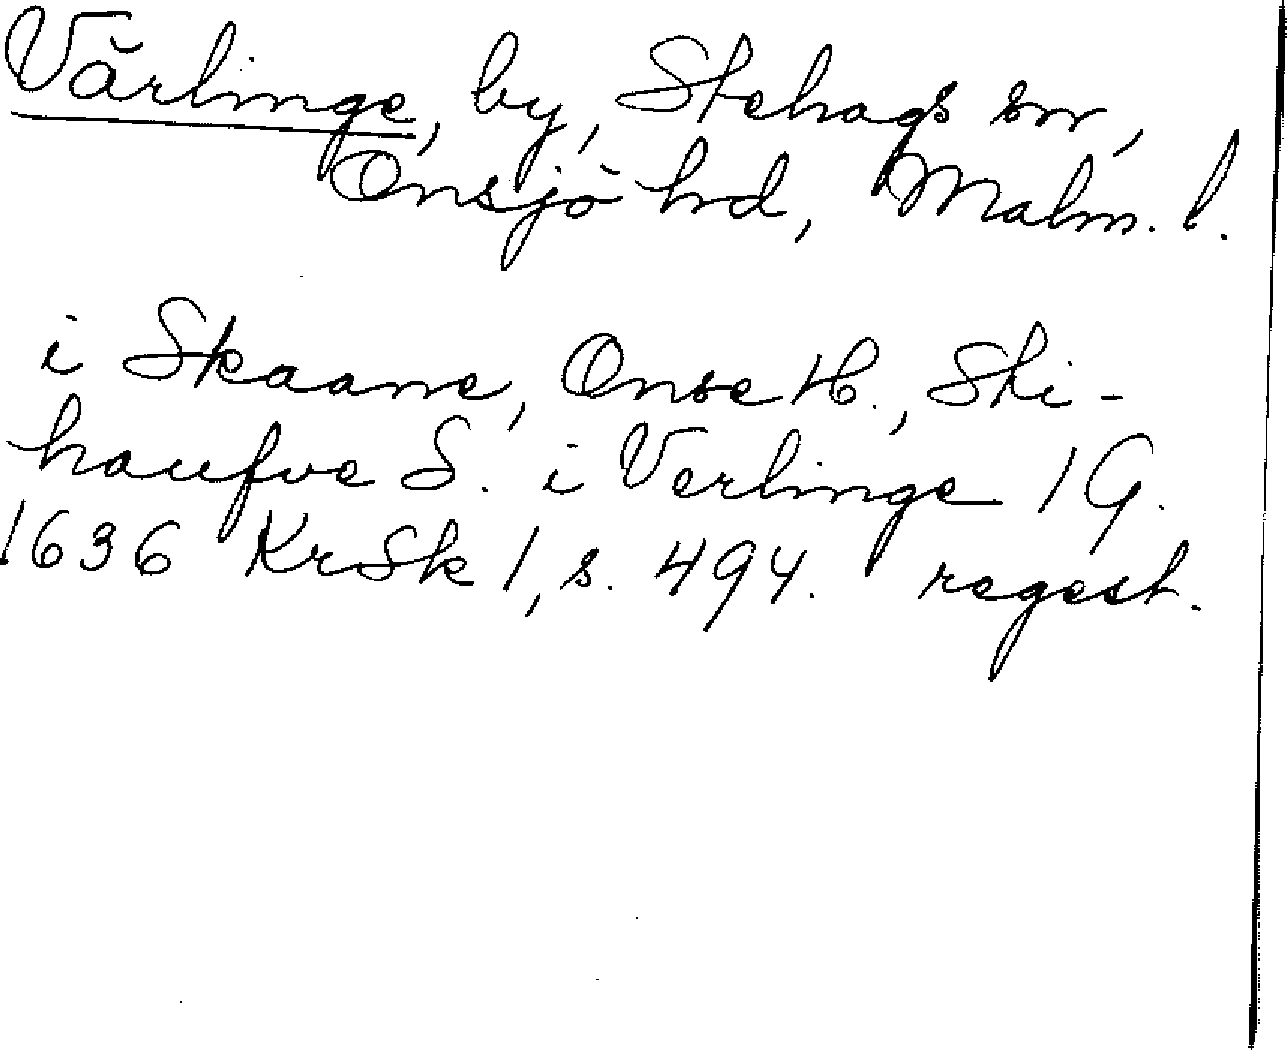 Värlinge, by, Stehags sn,
Onsjö hd, Malm. l.
i Skaane, Onse H., Sti-
haufve S. i Verlinge 1 G.
1636 KrSk 1, s. 494. regest.